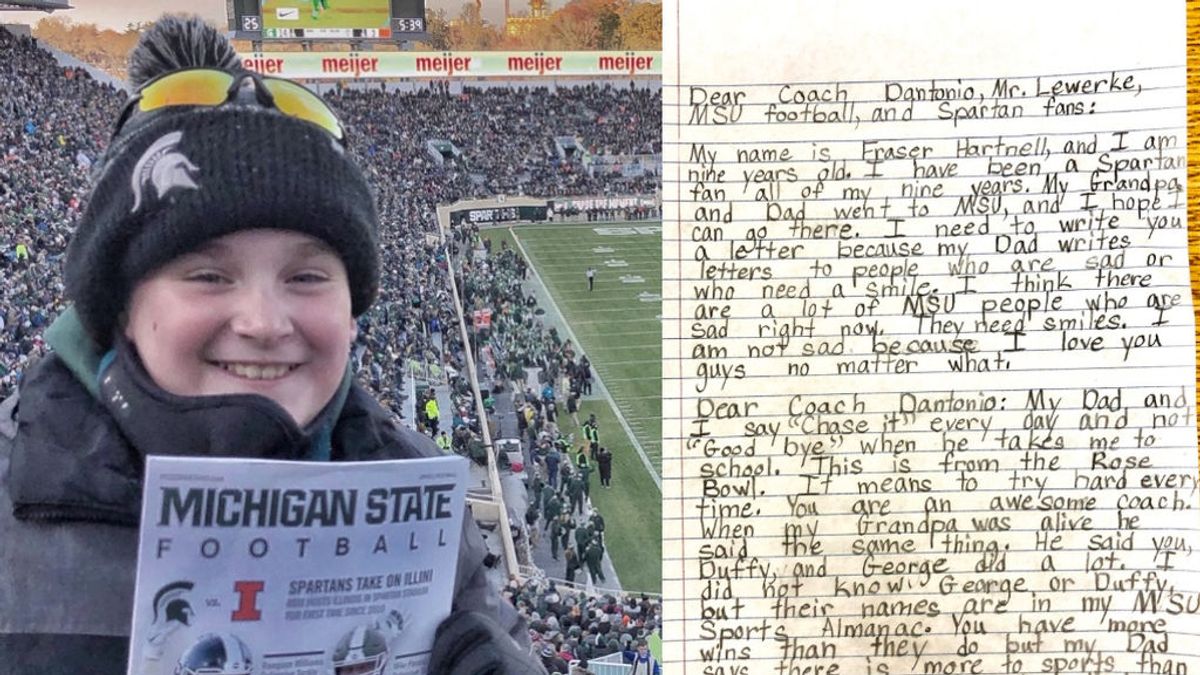 25
5:39
meijer meijer meijer meijer meijer
SPARTANS
MICHIGAN STATE
FOOTBALL
SPARTANS TAKE ON ILLINI
VS. I
Dear Coach Dantonio, Mr. Lewerke,
MSU football, and Spartan fans:
My name is Fraser Hartnell, and I am
nine years old. I have been a Spartan
fan all of my nine years. My Grandpa
and Dad went to MSU, and I hope I
can go there. I need to write you
a letter because my Dad writes
letters to people who are sad or
who need a smile. I think there
are a lot of MSU people who are
sad right now. They need smiles. I
am not sad because I love you
guys no matter what.
Dear Coach Dantonio: My Dad and
I say "Chase it" every day and not
"Good bye" when he takes me to
school. This is from the Rose
Bowl. It means to try hard every
time. You are an awesome coach.
When my Grandpa was alive he
said the same thing. He said you,
Duffy, and George did a lot. I
did not know George or Duffy,
but their names are in my MSU
Sports Almanac. You have more
wins than they do but my Dad
says there is more to sports than